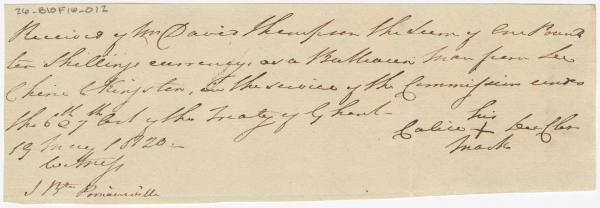 26-B10F16-012
Received of Mr David Thompson the Sum of One Pound
ten Shillings currency, as a Batteaux Man from La
Chine to Kingston, in the service of the Commission under
the 6th & 7th Art of the Treaty of Ghent
his
Calice +
mark
19 May 1820.
Witness
J Bte